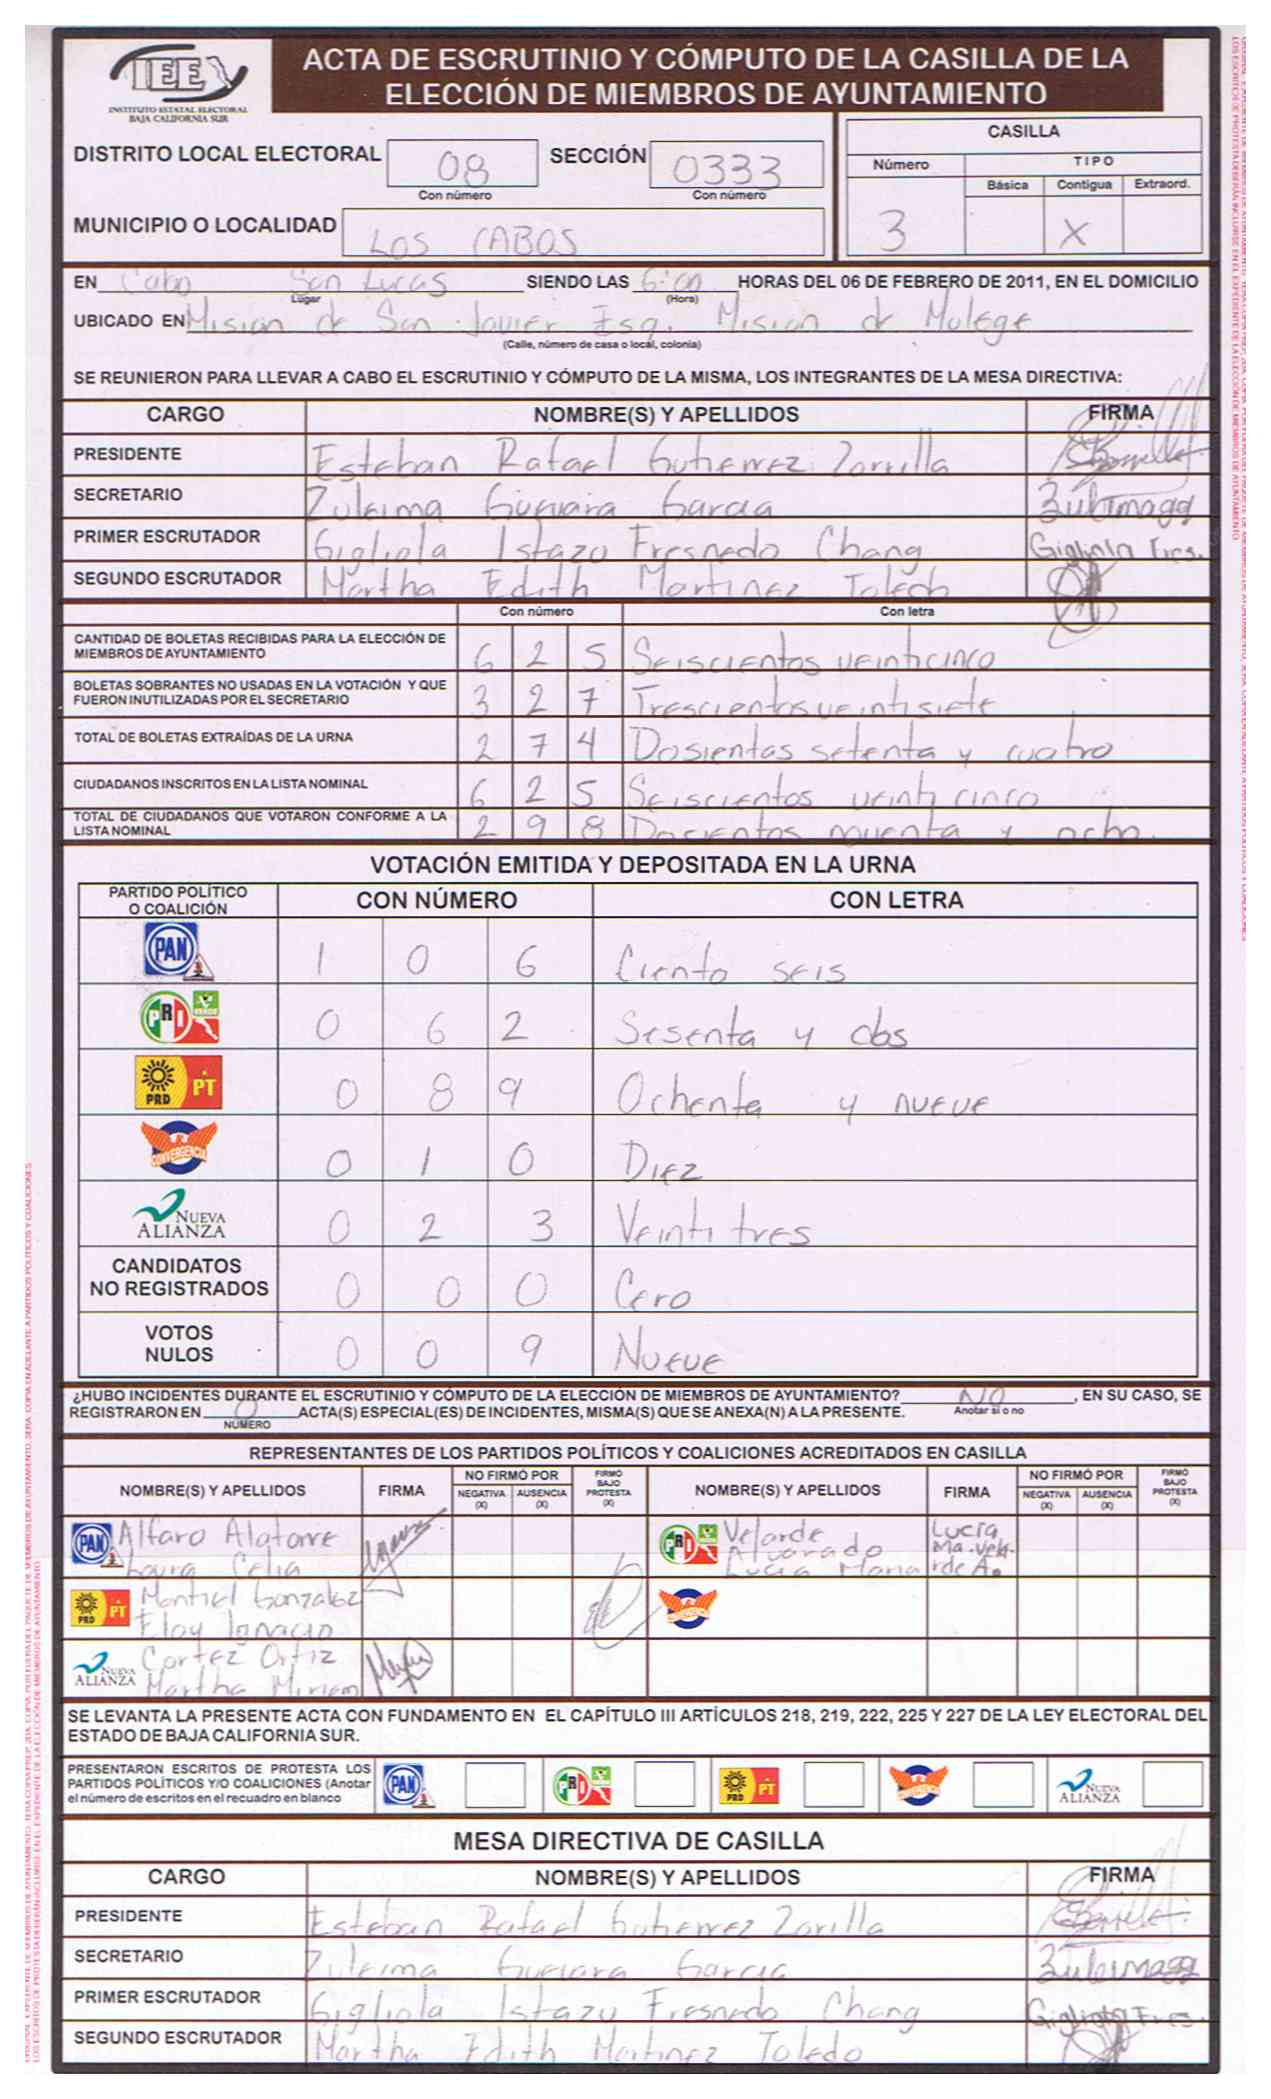 IEE
INSTITUTO ESTATAL ELECTORAL
BAJA CALIFORNIA SUR
ACTA DE ESCRUTINIO Y CÓMPUTO DE LA CASILLA DE LA
ELECCIÓN DE MIEMBROS DE AYUNTAMIENTO
DISTRITO LOCAL ELECTORAL 08 SECCIÓN 0333
Con número Con número
MUNICIPIO O LOCALIDAD LOS CABOS
CASILLA
Número TIPO
Básica Contigua Extraord.
3 X
EN Cabo San Lucas SIENDO LAS 6:00 HORAS DEL 06 DE FEBRERO DE 2011, EN EL DOMICILIO
Lugar (Hora)
UBICADO EN Mision de San Javier Esq. Mision de Mulege
(Calle, número de casa o local, colonia)
SE REUNIERON PARA LLEVAR A CABO EL ESCRUTINIO Y CÓMPUTO DE LA MISMA, LOS INTEGRANTES DE LA MESA DIRECTIVA:
CARGO NOMBRE(S) Y APELLIDOS FIRMA
PRESIDENTE Esteban Rafael Gutierrez Zorrilla
SECRETARIO Zuleima Guevara Garcia
PRIMER ESCRUTADOR Gigliola Istazu Fresnedo Chang Gigliola Fres.
SEGUNDO ESCRUTADOR Martha Edith Martinez Toledo
Con número Con letra
CANTIDAD DE BOLETAS RECIBIDAS PARA LA ELECCIÓN DE
MIEMBROS DE AYUNTAMIENTO 6 2 5 Seiscientos veinticinco
BOLETAS SOBRANTES NO USADAS EN LA VOTACIÓN Y QUE
FUERON INUTILIZADAS POR EL SECRETARIO 3 2 7 Trescientos veintisiete
TOTAL DE BOLETAS EXTRAÍDAS DE LA URNA 2 7 4 Dosientas setenta y cuatro
CIUDADANOS INSCRITOS EN LA LISTA NOMINAL 6 2 5 Seiscientos veinti cinco
TOTAL DE CIUDADANOS QUE VOTARON CONFORME A LA
LISTA NOMINAL 2 9 8 Dosientos noventa y ocho.
VOTACIÓN EMITIDA Y DEPOSITADA EN LA URNA
PARTIDO POLÍTICO
O COALICIÓN CON NÚMERO CON LETRA
PAN 1 0 6 Ciento seis
PRI 0 6 2 Sesenta y dos
PRD PT 0 8 9 Ochenta y nueve
CONVERGENCIA 0 1 0 Diez
NUEVA ALIANZA 0 2 3 Veinti tres
CANDIDATOS
NO REGISTRADOS 0 0 0 Cero
VOTOS
NULOS 0 0 9 Nueve
¿HUBO INCIDENTES DURANTE EL ESCRUTINIO Y CÓMPUTO DE LA ELECCIÓN DE MIEMBROS DE AYUNTAMIENTO? NO, EN SU CASO, SE
Anotar sí o no
REGISTRARON EN 0 ACTA(S) ESPECIAL(ES) DE INCIDENTES, MISMA(S) QUE SE ANEXA(N) A LA PRESENTE.
NÚMERO
REPRESENTANTES DE LOS PARTIDOS POLÍTICOS Y COALICIONES ACREDITADOS EN CASILLA
NOMBRE(S) Y APELLIDOS FIRMA NO FIRMÓ POR NEGATIVA (X) AUSENCIA (X) FIRMÓ BAJO PROTESTA (X) NOMBRE(S) Y APELLIDOS FIRMA NO FIRMÓ POR NEGATIVA (X) AUSENCIA (X) FIRMÓ BAJO PROTESTA (X)
PAN Alfaro Alatorre
Laura Celia
PRI Velarde
Alvarado
Lucia Maria
Lucía
Ma. Vela-
rde A.
PRD PT Montiel Gonzalez
Eloy Ignacio
NUEVA ALIANZA Cortez Ortiz
Martha Miriam
SE LEVANTA LA PRESENTE ACTA CON FUNDAMENTO EN EL CAPÍTULO III ARTÍCULOS 218, 219, 222, 225 Y 227 DE LA LEY ELECTORAL DEL
ESTADO DE BAJA CALIFORNIA SUR.
PRESENTARON ESCRITOS DE PROTESTA LOS
PARTIDOS POLÍTICOS Y/O COALICIONES (Anotar
el número de escritos en el recuadro en blanco
PAN PRI PRD PT NUEVA ALIANZA
MESA DIRECTIVA DE CASILLA
CARGO NOMBRE(S) Y APELLIDOS FIRMA
PRESIDENTE Esteban Rafael Gutierrez Zorilla
SECRETARIO Zuleima Guevara Garcia
PRIMER ESCRUTADOR Gigliola Istazu Fresnedo Chang Gigliola Fres.
SEGUNDO ESCRUTADOR Martha Edith Martinez Toledo